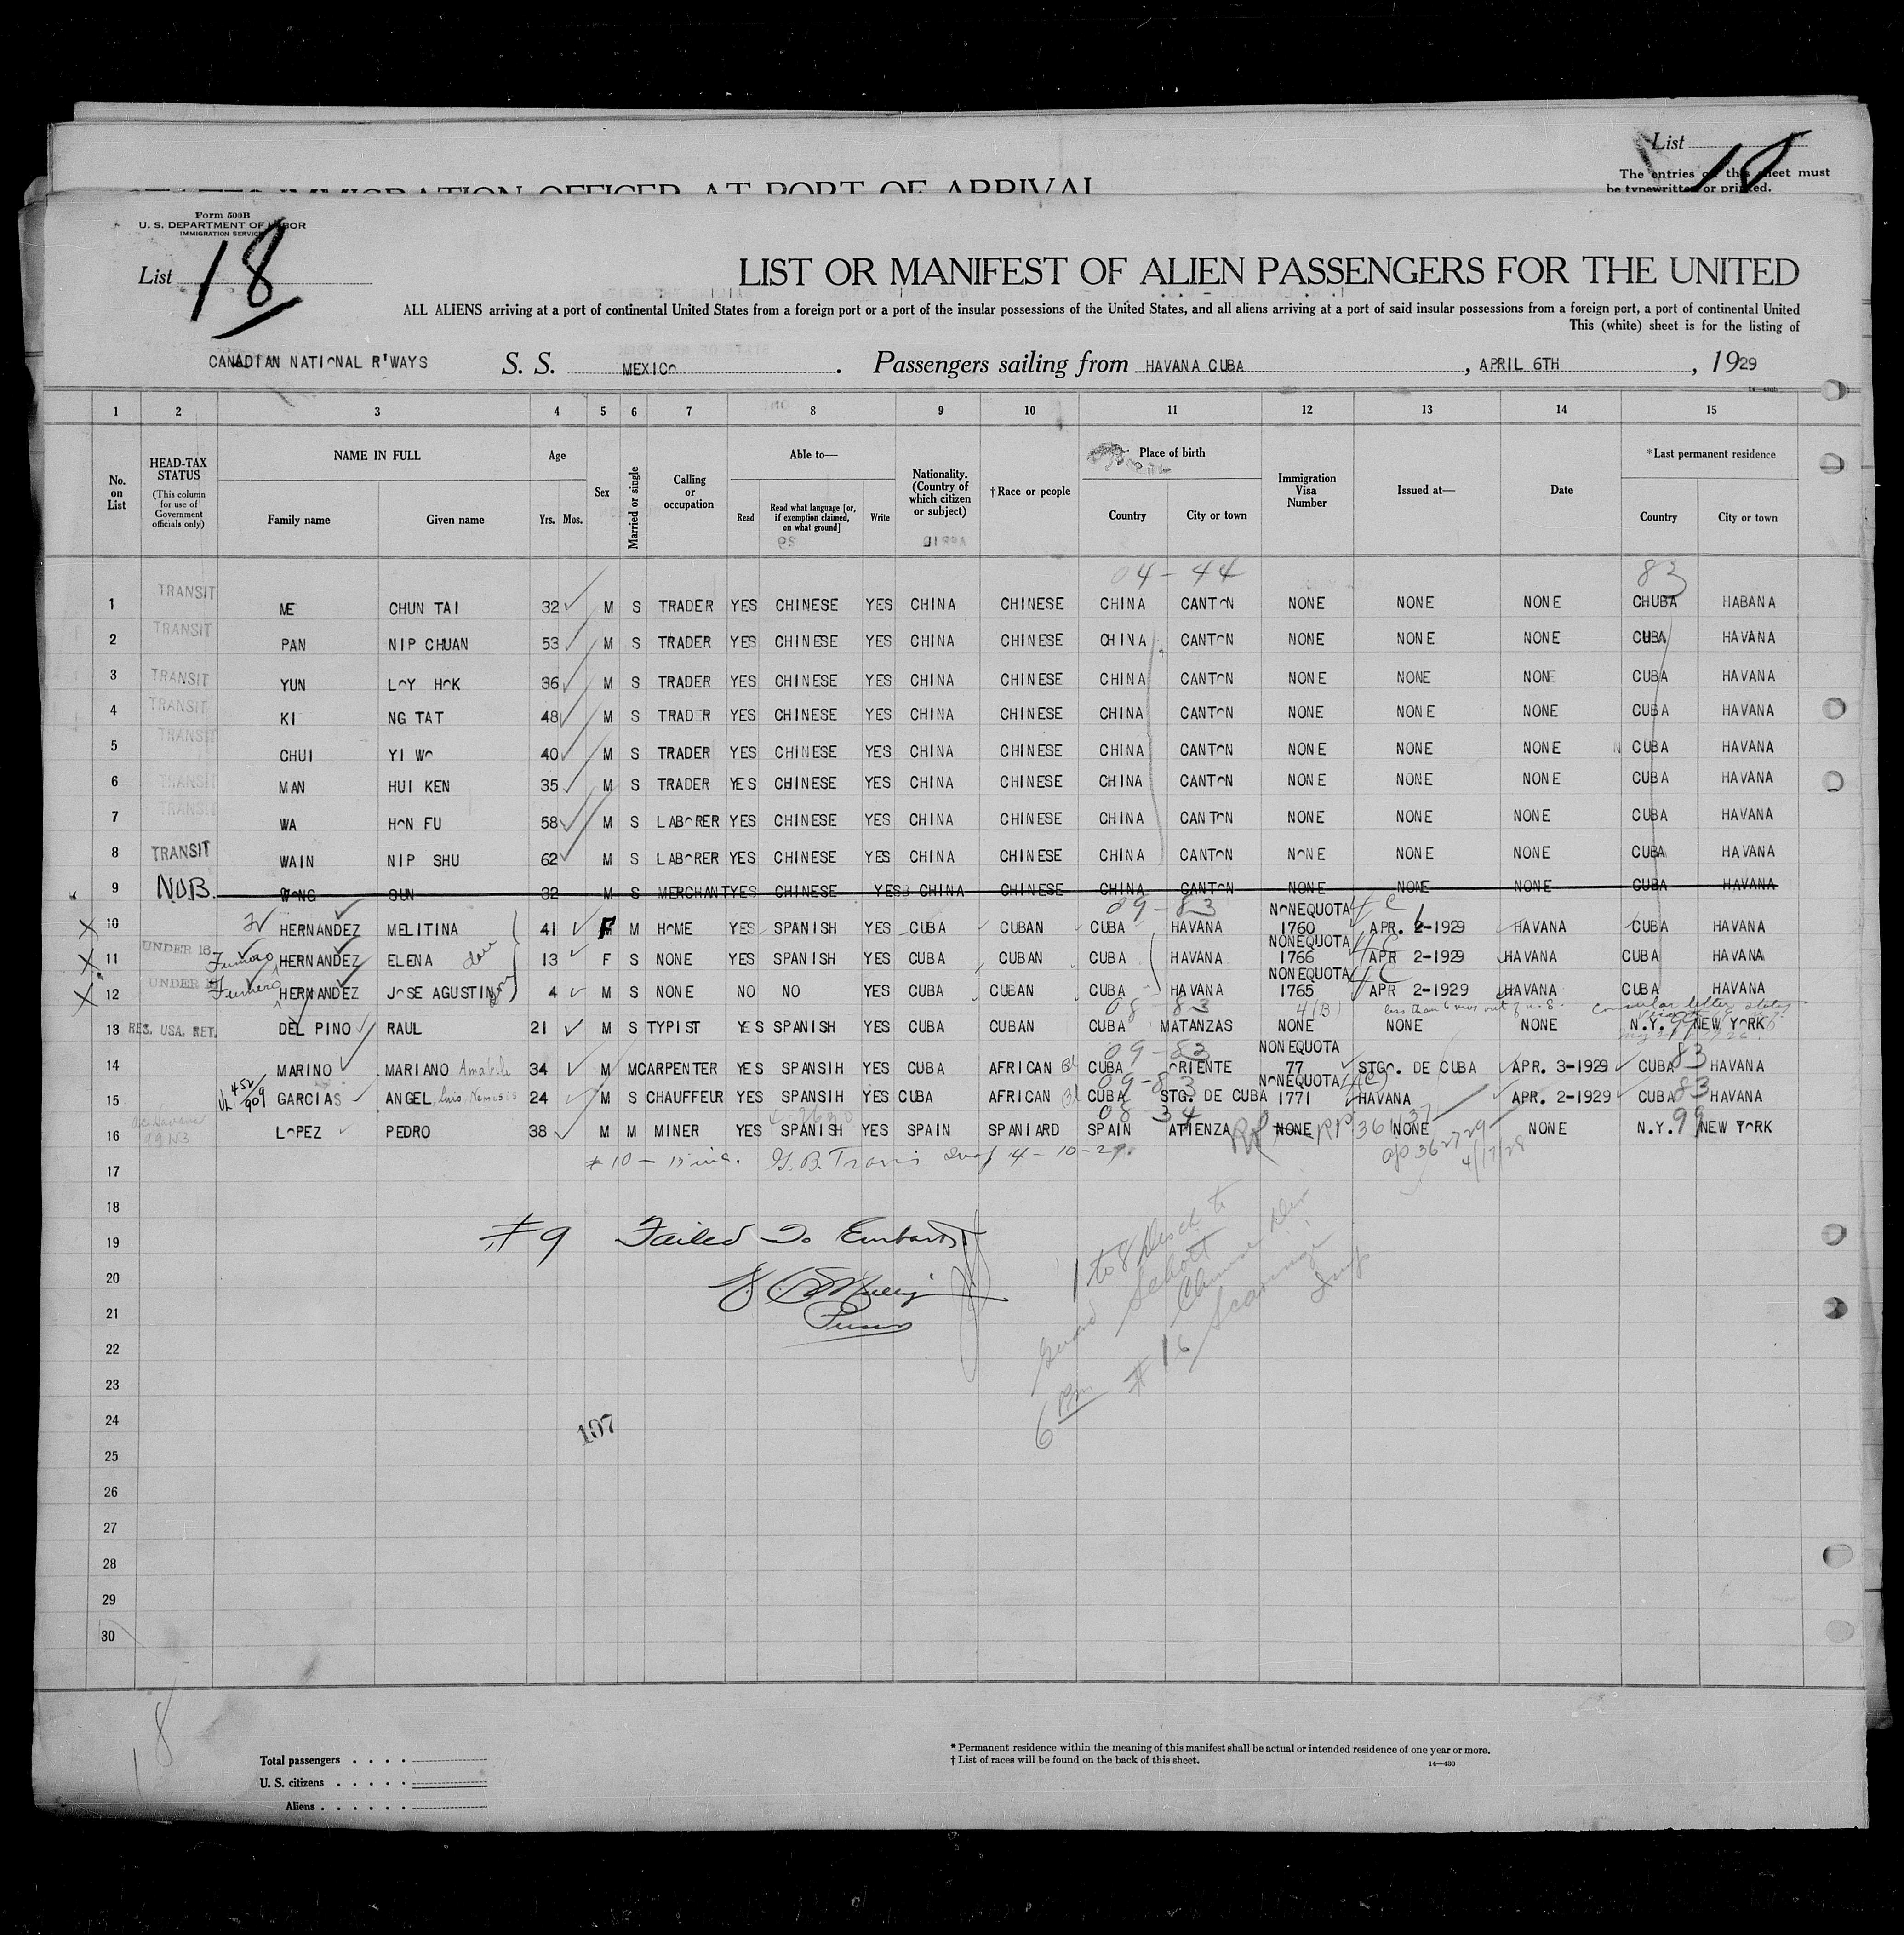 List 18
The entries on this sheet must
be typewritten or printed.
STATES IMMIGRATION OFFICER AT PORT OF ARRIVAL
Form 500B
U. S. DEPARTMENT OF LABOR
IMMIGRATION SERVICE
List 18
LIST OR MANIFEST OF ALIEN PASSENGERS FOR THE UNITED
ALL ALIENS arriving at a port of continental United States from a foreign port or a port of the insular possessions of the United States, and all aliens arriving at a port of said insular possessions from a foreign port, a port of continental United
This (white) sheet is for the listing of
CANADIAN NATIONAL R'WAYS S. S. MEXICO . Passengers sailing from HAVANA CUBA , APRIL 6TH , 1929
14—430b
1 2 3 4 5 6 7 8 9 10 11 12 13 14 15
No. on List
HEAD-TAX STATUS (This column for use of Government officials only)
NAME IN FULL Family name Given name
Age Yrs. Mos.
Sex
Married or single
Calling or occupation
Able to— Read Read what language [or, if exemption claimed, on what ground] Write
Nationality. (Country of which citizen or subject)
†Race or people
Place of birth Country City or town
Immigration Visa Number
Issued at—
Date
*Last permanent residence Country City or town
04-44 83
1 TRANSIT ME CHUN TAI 32 M S TRADER YES CHINESE YES CHINA CHINESE CHINA CANTON NONE NONE NONE CHUBA HABANA
2 TRANSIT PAN NIP CHUAN 53 M S TRADER YES CHINESE YES CHINA CHINESE CHINA CANTON NONE NONE NONE CUBA HAVANA
3 TRANSIT YUN LOY HOK 36 M S TRADER YES CHINESE YES CHINA CHINESE CHINA CANTON NONE NONE NONE CUBA HAVANA
4 TRANSIT KI NG TAT 48 M S TRADER YES CHINESE YES CHINA CHINESE CHINA CANTON NONE NONE NONE CUBA HAVANA
5 TRANSIT CHUI YI WO 40 M S TRADER YES CHINESE YES CHINA CHINESE CHINA CANTON NONE NONE NONE CUBA HAVANA
6 TRANSIT MAN HUI KEN 35 M S TRADER YES CHINESE YES CHINA CHINESE CHINA CANTON NONE NONE NONE CUBA HAVANA
7 TRANSIT WA HON FU 58 M S LABORER YES CHINESE YES CHINA CHINESE CHINA CANTON NONE NONE NONE CUBA HAVANA
8 TRANSIT WAIN NIP SHU 62 M S LABORER YES CHINESE YES CHINA CHINESE CHINA CANTON NONE NONE NONE CUBA HAVANA
9 N.O.B. WONG SUN 32 M S MERCHANT YES CHINESE YES CHINA CHINESE CHINA CANTON NONE NONE NONE CUBA HAVANA
09-83 NONEQUOTA 4C
X 10 HERNANDEZ MELITINA 41 F M HOME YES SPANISH YES CUBA CUBAN CUBA HAVANA 1760 APR. 2-1929 HAVANA CUBA HAVANA
NONEQUOTA 4C
X 11 UNDER 16 Fumero HERNANDEZ ELENA dau 13 F S NONE YES SPANISH YES CUBA CUBAN CUBA HAVANA 1766 APR 2-1929 HAVANA CUBA HAVANA
NONEQUOTA 4C
X 12 UNDER 16 Fumero HERNANDEZ JOSE AGUSTIN son 4 M S NONE NO NO YES CUBA CUBAN CUBA HAVANA 1765 APR 2-1929 HAVANA CUBA HAVANA
08-83 4(B) less than 6 mos out of U.S. Consular letter states
13 RES. USA. RET. DEL PINO RAUL 21 M S TYPIST YES SPANISH YES CUBA CUBAN CUBA MATANZAS NONE NONE NONE N.Y. 99 NEW YORK
09-83 NONEQUOTA
14 MARINO MARIANO Amabile 34 M M CARPENTER YES SPANSIH YES CUBA AFRICAN Bl CUBA ORIENTE 77 STGO. DE CUBA APR. 3-1929 CUBA 83 HAVANA
09-83 NONEQUOTA 4(C)
15 452/909 GARCIAS ANGEL, Luis Nemesis 24 M S CHAUFFEUR YES SPANSIH YES CUBA AFRICAN Bl CUBA STG. DE CUBA 1771 HAVANA APR. 2-1929 CUBA 83 HAVANA
08-34
16 LOPEZ PEDRO 38 M M MINER YES SPANISH YES SPAIN SPANIARD SPAIN ATIENZA RP NONE RP NONE NONE N.Y. 99 NEW YORK
17 #10 - 15 inc. G.B. Travis Insp 4-10-29. 4/17/28
18
19 #9 Failed To Embark
20
21 Purser
22
23
24
25
26
27
28
29
30
1 to 8 Disch to
Chinese Div
Guard
6 Pm #16
Insp
107
18
Total passengers . . . .
U. S. citizens . . . . .
Aliens . . . . . .
* Permanent residence within the meaning of this manifest shall be actual or intended residence of one year or more.
† List of races will be found on the back of this sheet.
14—430